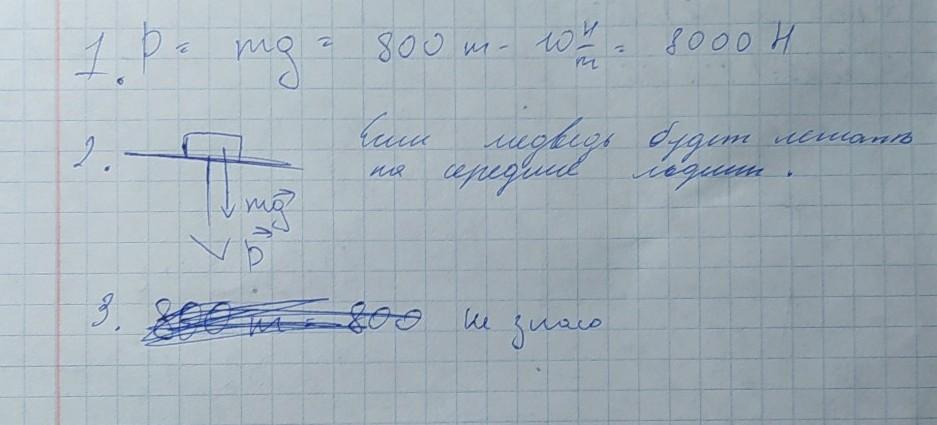 1. P = mg = 800 т · 10 Н/т = 8000 Н
2. Если медведь будет лежать
на середине льдины.
mg
P
3. 800 т = 800 не знаю